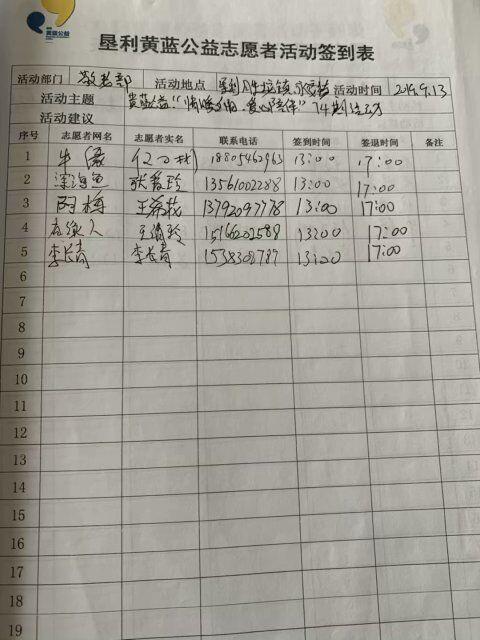 黄蓝公益
垦利黄蓝公益志愿者活动签到表
活动部门 敬老部 活动地点 垦利 活动时间 2019.9.13
活动主题 黄蓝公益“情暖 爱心陪伴”74期活动
活动建议
序号 志愿者网名 志愿者实名 联系电话 签到时间 签退时间 备注
1 18805462963 13:00 17:00
2 深海鱼 张爱玲 13561002288 13:00 17:00
3 阿梅 13792097778 13:00 17:00
4 有缘人 15166202588 13:00 17:00
5 李长青 李长青 13:00 17:00
6
7
8
9
10
11
12
13
14
15
16
17
18
19